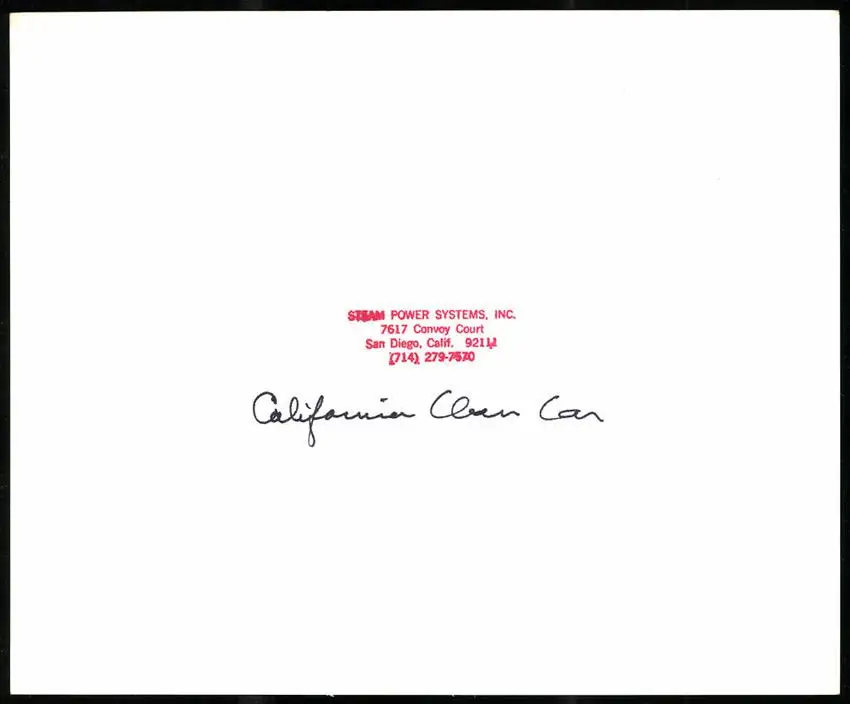 STEAM POWER SYSTEMS, INC.
7617 Convoy Court
San Diego, Calif. 92111
(714) 279-7570
California Clean Car